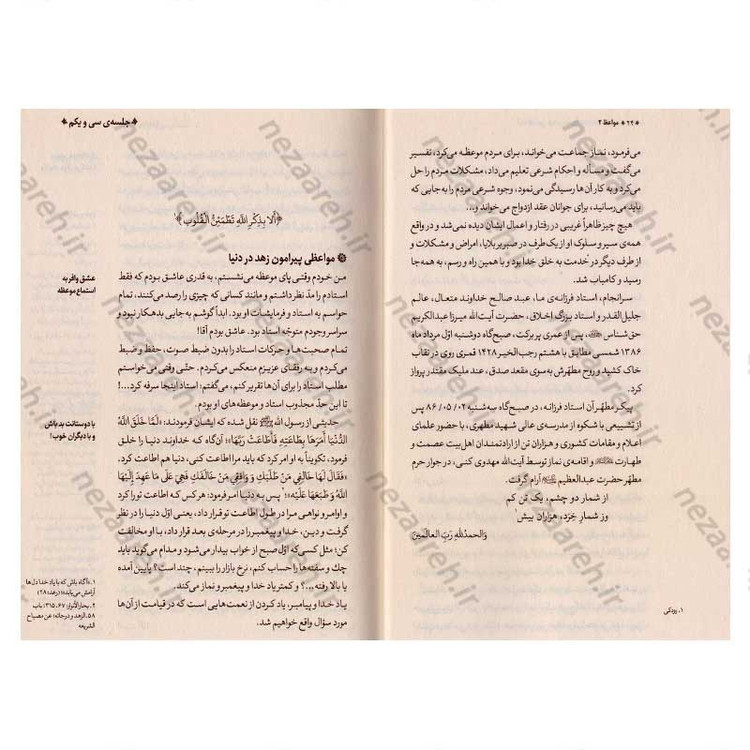 ﴿۲۴﴾ مواعظ ۲
می‌فرمود، نماز جماعت می‌خواند، برای مردم موعظه می‌کرد، تفسیر
می‌گفت و مسأله و احکام شرعی تعلیم می‌داد، مشکلات مردم را حل
می‌کرد و به کار آن‌ها رسیدگی می‌نمود، وجوه شرعی مردم را به جایی که
باید می‌رسانید، برای جوانان عقد ازدواج می‌خواند و...
هیچ چیز ظاهراً غریبی در رفتار و اعمال ایشان دیده نمی‌شد و در واقع
همه‌ی سیر و سلوک او از یک طرف در صبر بر بلایا، امراض و مشکلات و
از طرف دیگر در خدمت به خلق خدا بود و با همین راه و رسم، به همه جا
رسید و کامیاب شد.
سرانجام، استاد فرزانه‌ی ما، عبد صالح خداوند متعال، عالم
جلیل‌القدر و استاد بزرگ اخلاق، حضرت آیت‌الله میرزا عبدالکریم
حق‌شناس، پس از عمری پربرکت، صبح‌گاه دوشنبه اوّل مرداد ماه
۱۳۸۶ شمسی مطابق با هشتم رجب‌الخیر ۱۴۲۸ قمری روی در نقاب
خاک کشید و روح مطهّرش به سوی مقعد صدق، عند ملیک مقتدر پرواز
کرد.
پیکر مطهّر آن استاد فرزانه، در صبح‌گاه سه‌شنبه ۰۲/ ۰۵/ ۸۶ پس
از تشییعی با شکوه از مدرسه‌ی عالی شهید مطهری، با حضور علمای
اعلام و مقامات کشوری و هزاران تن از ارادتمندان اهل‌بیت عصمت و
طهارت و اقامه‌ی نماز توسط آیت‌الله مهدوی کنی، در جوار حرم
مطهّر حضرت عبدالعظیم آرام گرفت.
از شمار دو چشم، یک تن کم
وز شمارِ خِرَد، هزاران بیش۱
وَالحمدُللهِ رَبّ العالَمین
۱. رودکی
جلسه‌ی سی و یکم
﴿أَلا بِذِکْرِ اللهِ تَطْمَئِنُّ الْقُلُوب﴾۱
مواعظی پیرامون زهد در دنیا
عشق وافر به
استماع موعظه
من خودم وقتی پای موعظه می‌نشستم، به قدری عاشق بودم که فقط
استادم را مدّ نظر داشتم و مانند کسانی که چیزی را رصد می‌کنند، تمام
حواسم به استاد و فرمایشات او بود. ابداً گوشم به جایی بدهکار نبود و
سراسر وجودم متوجّه استاد بود. عاشق بودم آقا!
تمام صحبت‌ها و حرکات استاد را بدون ضبط صوت، حفظ و ضبط
می‌کردم و به رفقای عزیزم منعکس می‌کردم. حتّی وقتی می‌خواستم
مطلب استاد را برای آن‌ها تقریر کنم، می‌گفتم: استاد اینجا سرفه کرد...!
تا این حدّ مجذوب استاد و موعظه‌های او بودم.
با دوستانت بد باش
و با دیگران خوب!
حدیثی از رسول الله نقل شده که ایشان فرمودند: «لَمَّا خَلَقَ اللهُ
الدُّنْیَا أَمَرَهَا بِطَاعَتِهِ فَأَطَاعَتْ رَبَّهَا»؛ آن‌گاه که خداوند دنیا را خلق
فرمود، تکویناً به او امر کرد که باید مرا اطاعت کنی، دنیا هم اطاعت کرد.
«فَقَالَ لَهَا خَالِفِی مَنْ طَلَبَكِ وَ وَافِقِی مَنْ خَالَفَكِ فَهِیَ عَلَى مَا عَهِدَ إِلَیْهَا
اللهُ وَ طَبَعَهَا عَلَیْهِ»؛۲ پس به دنیا امر فرمود: هر کس که اطاعت تو را کرد
و اوامر و نواهی مرا در طول اطاعت تو قرار داد، یعنی اوّل دنیا را در نظر
گرفت و دین، خدا و پیغمبر را در مرحله‌ی بعد قرار داد، با او مخالفت
کن؛ مثل کسی که اوّل صبح از خواب بیدار می‌شود و مدام می‌گوید باید
چک و سفته‌ها را حساب کنم، نرخ بازار را ببینم، چند است؟ پایین آمده
یا بالا رفته...؟ و کمتر یاد خدا و پیغمبر و نماز می‌کند.
یاد خدا و پیامبر، یاد کردن از نعمت‌هایی است که در قیامت از آن‌ها
مورد سؤال واقع خواهیم شد.
۱. «آگاه باش که با یاد خدا دل‌ها
آرامش می‌یابد» (رعد: ۲۸)
۲. بحارالأنوار، ۶۷، ۳۱۵، باب
۵۸، الزهد و درجاته؛ عن مصباح
الشریعه
nezaareh.ir